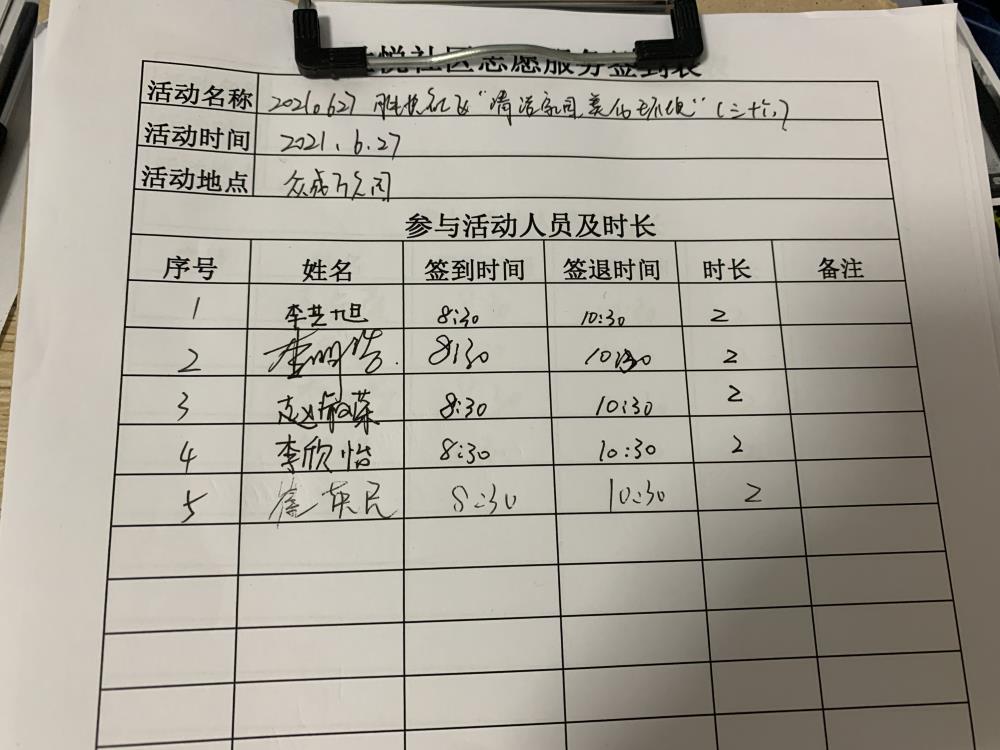 悦社区志愿服务签到表
活动名称 2021.6.27 胜悦社区“清洁家园,美化环境”(三十六)
活动时间 2021.6.27
活动地点 众成
参与活动人员及时长
序号 姓名 签到时间 签退时间 时长 备注
1 李艺旭 8:30 10:30 2
2 李明浩 8:30 10:30 2
3 赵敏荣 8:30 10:30 2
4 李欣怡 8:30 10:30 2
5 英民 8:30 10:30 2